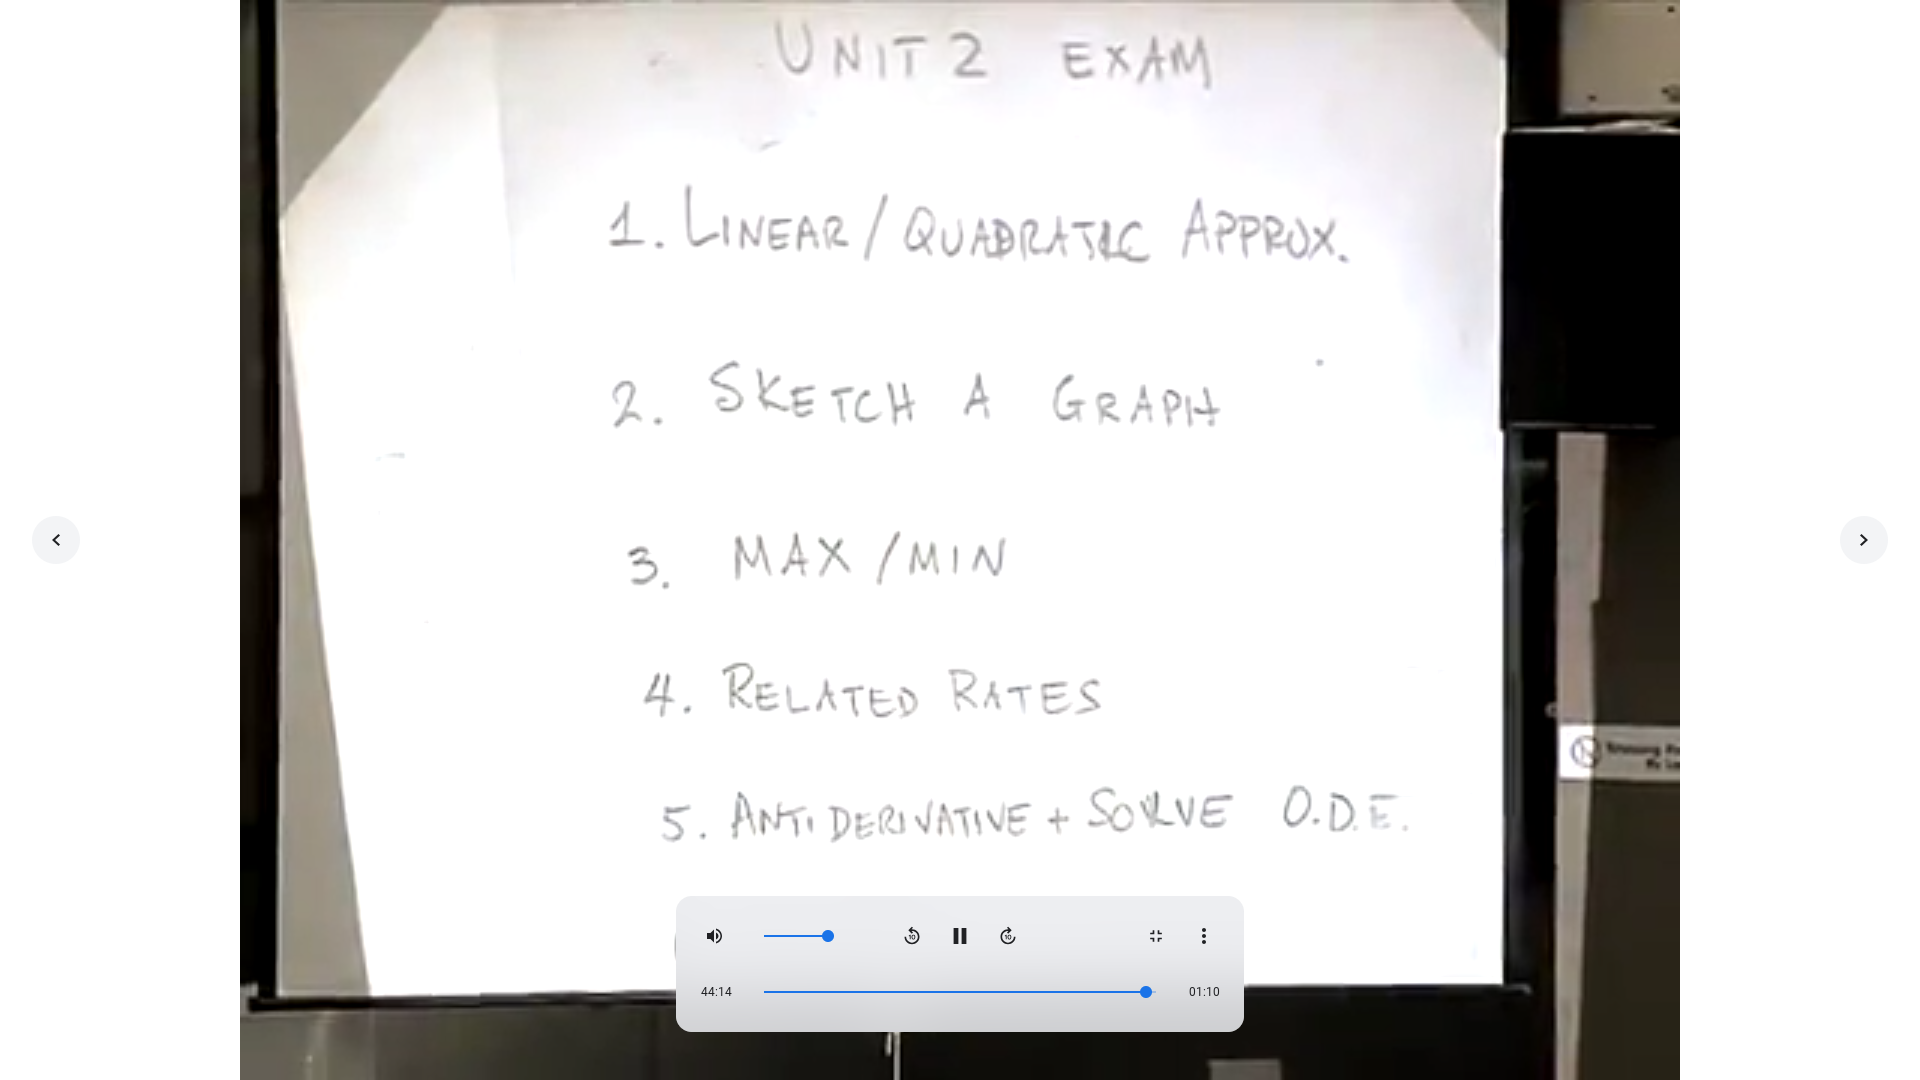 UNIT 2 EXAM
1. LINEAR / QUADRATIC APPROX.
2. SKETCH A GRAPH
3. MAX / MIN
4. RELATED RATES
5. ANTIDERIVATIVE + SOLVE O.D.E.
10
10
44:14
01:10